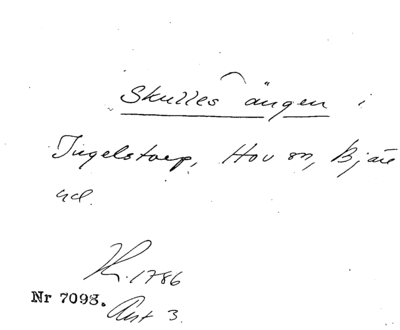 Skulles ängen i
Ingelstorp, Hov sn, Bjäre
hd.
K. 1786
Nr 7098. Akt 3.